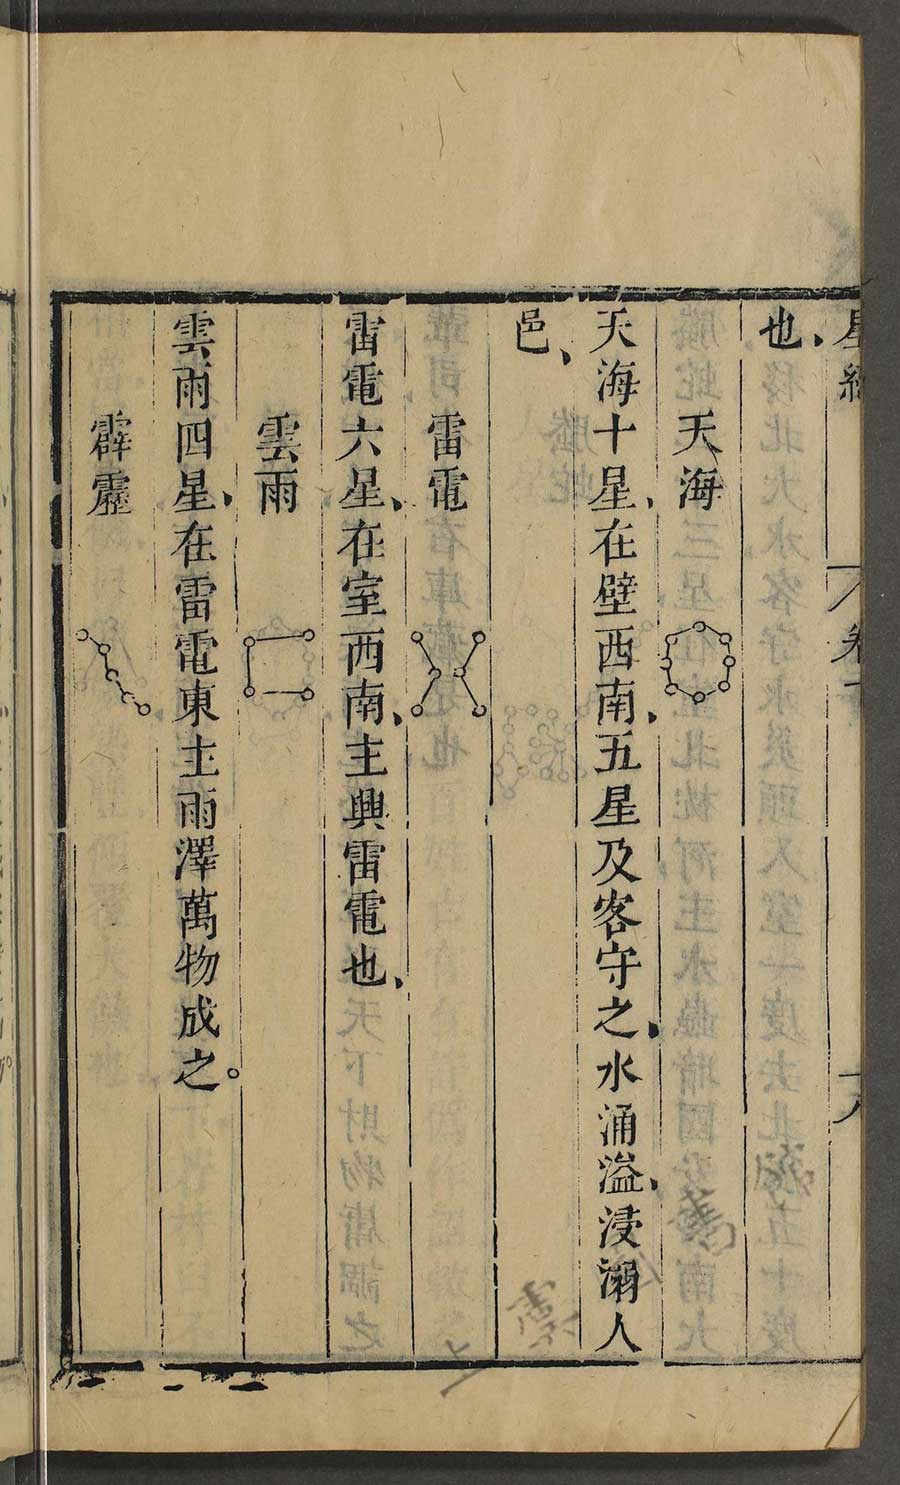 星經 卷下 十八
也、
天海
天海十星、在壁西南、五星及客守之、水涌溢、浸溺人
邑、
雷電
雷電六星、在室西南、主興雷電也、
雲雨
雲雨四星、在雷電東主雨澤萬物成之。
霹靂